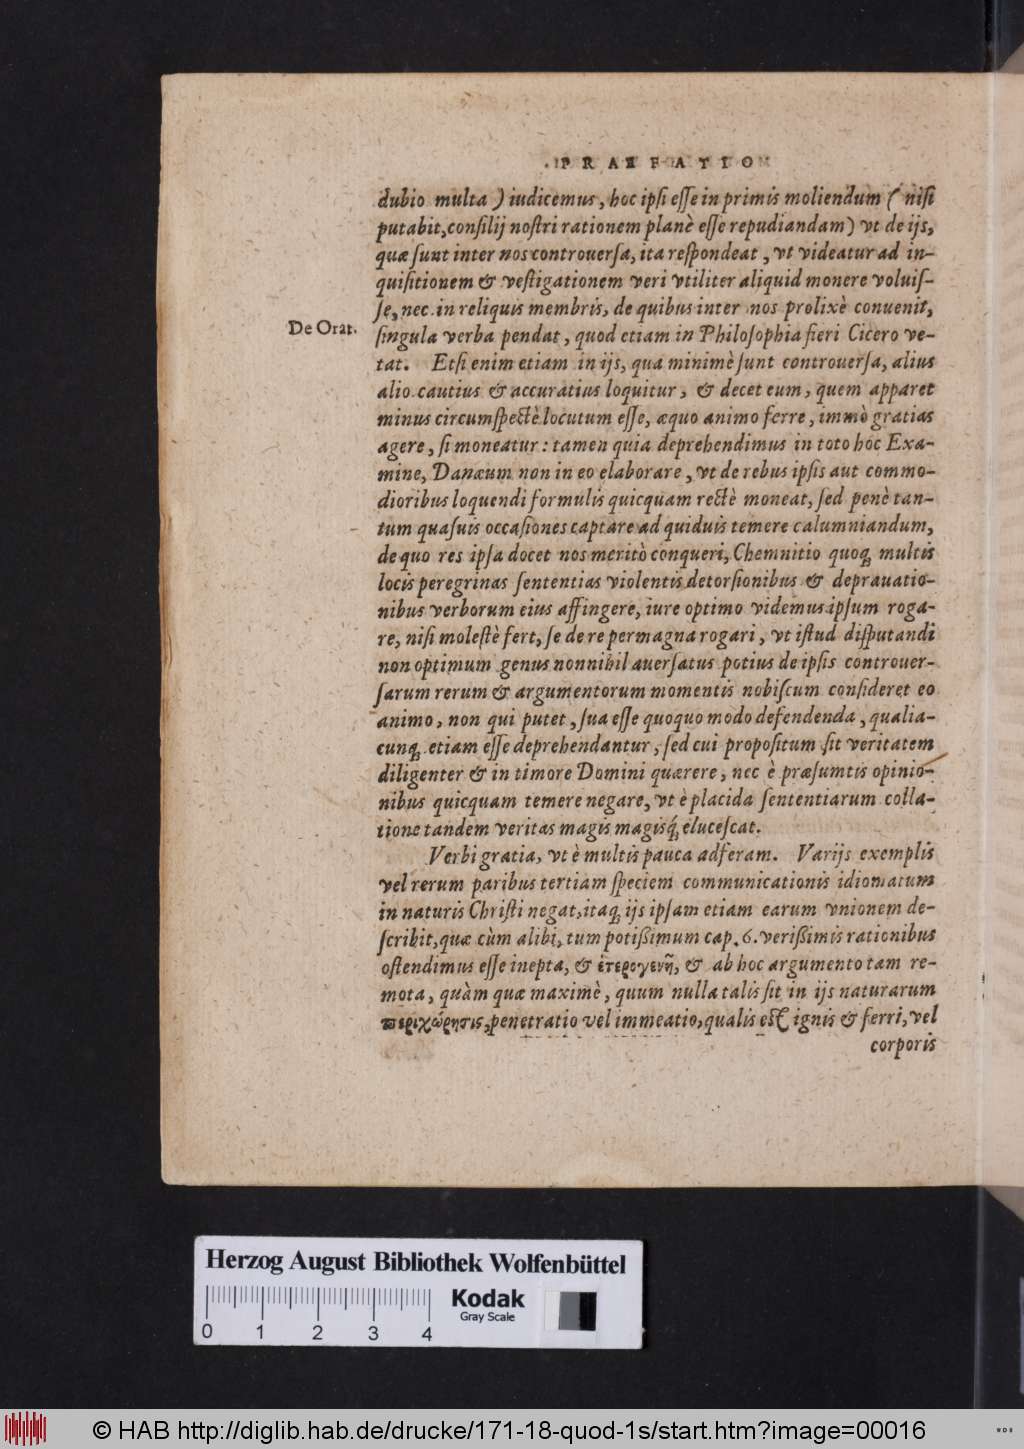 PRAEFATIO
dubio multa) iudicemus, hoc ipsi esse in primis moliendum (nisi
putabit, consilij nostri rationem planè esse repudiandam) vt de ijs,
quæ sunt inter nos controuersa, ita respondeat, vt videatur ad in-
quisitionem & vestigationem veri vtiliter aliquid monere voluis-
se, nec in reliquis membris, de quibus inter nos prolixè conuenit,
De Orat.
singula verba pendat, quod etiam in Philosophia fieri Cicero ve-
tat. Etsi enim etiam in ijs, qua minimè sunt controuersa, alius
alio cautius & accuratius loquitur, & decet eum, quem apparet
minus circumspectè locutum esse, æquo animo ferre, immò gratias
agere, si moneatur: tamen quia deprehendimus in toto hoc Exa-
mine, Danæum non in eo elaborare, vt de rebus ipsis aut commo-
dioribus loquendi formulis quicquam rectè moneat, sed penè tan-
tum quasuis occasiones captare ad quiduis temere calumniandum,
de quo res ipsa docet nos meritò conqueri, Chemnitio quoq; multis
locis peregrinas sententias violentis detorsionibus & deprauatio-
nibus verborum eius affingere, iure optimo videmus ipsum roga-
re, nisi molestè fert, se de re permagna rogari, vt istud disputandi
non optimum genus nonnihil auersatus potius de ipsis controuer-
sarum rerum & argumentorum momentis nobiscum consideret eo
animo, non qui putet, sua esse quoquo modo defendenda, qualia-
cunq; etiam esse deprehendantur, sed cui propositum sit veritatem
diligenter & in timore Domini quærere, nec è præsumtis opinio-
nibus quicquam temere negare, vt è placida sententiarum colla-
tione tandem veritas magis magisq́; elucescat.
Verbi gratia, vt è multis pauca adferam. Varijs exemplis
vel rerum paribus tertiam speciem communicationis idiomatum
in naturis Christi negat, itaq; ijs ipsam etiam earum vnionem de-
scribit, quæ cùm alibi, tum potißimum cap. 6. verißimis rationibus
ostendimus esse inepta, & ἑτερογενῆ, & ab hoc argumento tam re-
mota, quàm quæ maximè, quum nulla talis sit in ijs naturarum
περιχώρησις, penetratio vel immeatio, qualis est ignis & ferri, vel
corporis
Herzog August Bibliothek Wolfenbüttel
Kodak
Gray Scale
0 1 2 3 4
© HAB http://diglib.hab.de/drucke/171-18-quod-1s/start.htm?image=00016